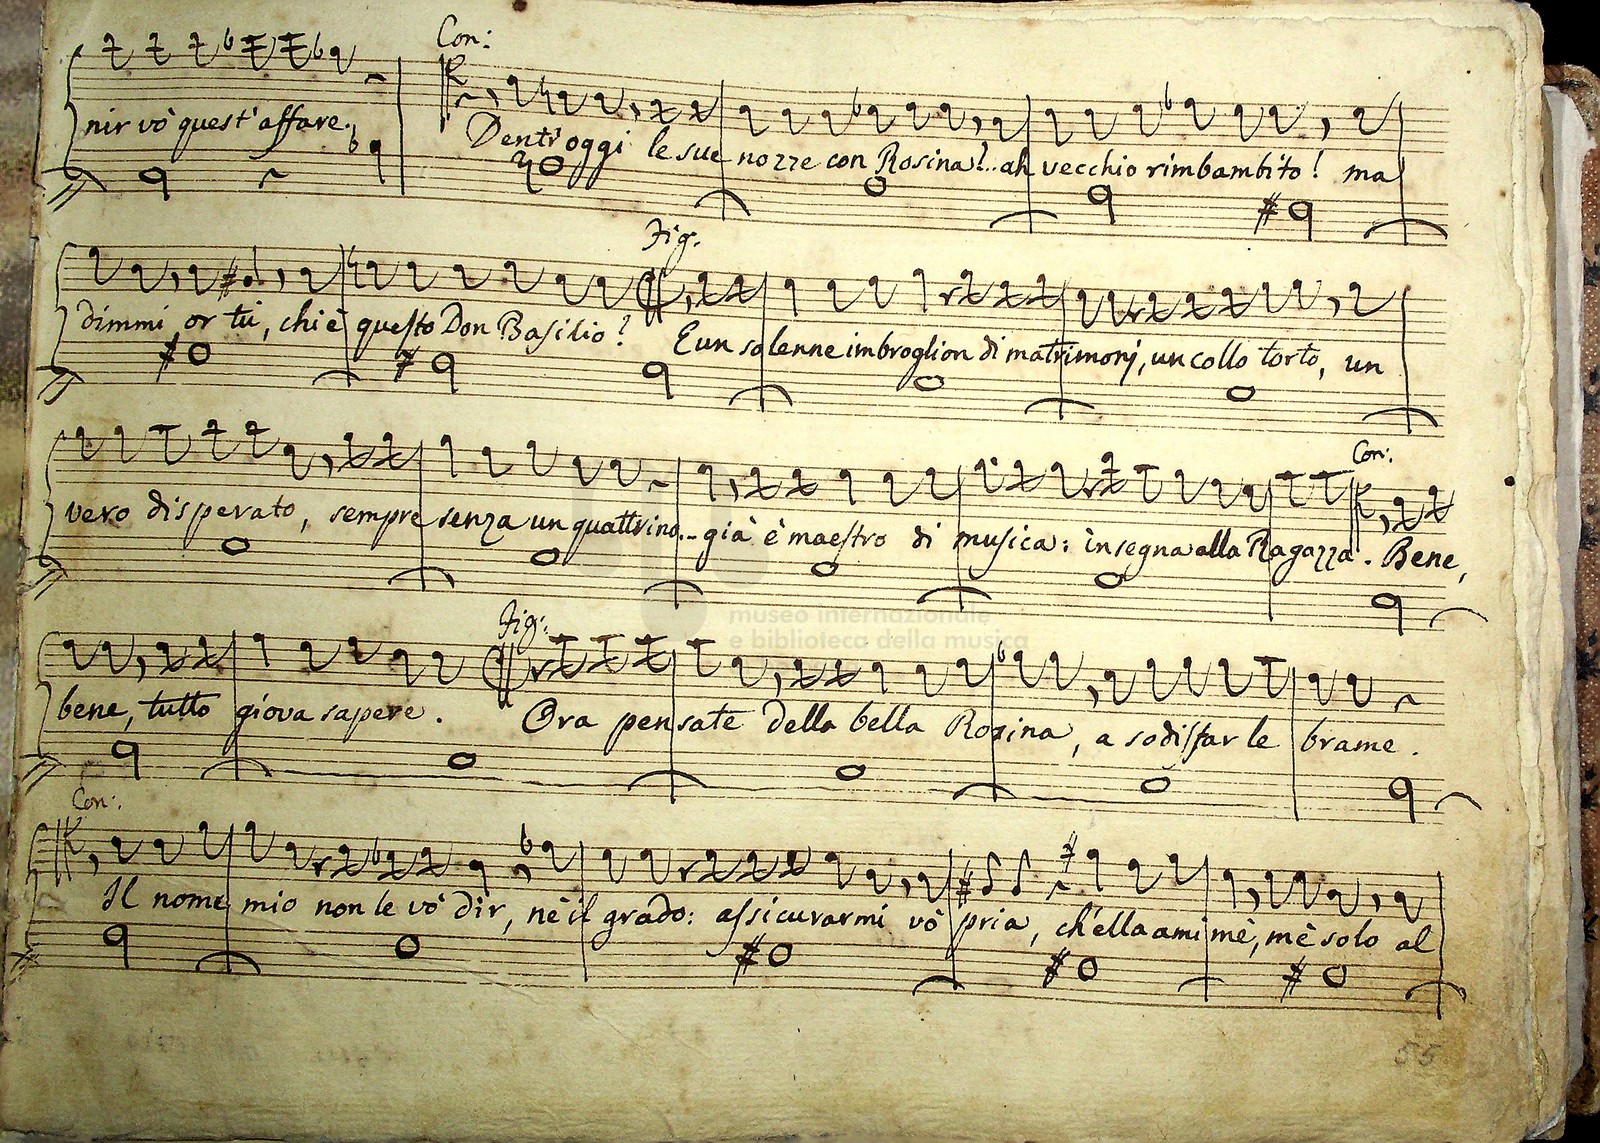 Con:
nir vò quest'affare. Dentr'oggi le sue nozze con Rosina!.. ah vecchio rimbambito! ma
Fig.
dimmi or tu, chi è questo Don Basilio? E un solenne imbroglion di matrimonj, un collo torto, un
Con:
vero disperato, sempre senza un quattrino.. già è maestro di musica: insegna alla Ragazza. Bene,
Fig:
bene, tutto giova sapere. Ora pensate della bella Rosina, a sodisfar le brame.
Con:
Il nome mio non le vò dir, nè il grado: assicurarmi vò pria, ch'ella ami mè, mè solo al
55
museo internazionale
e biblioteca della musica